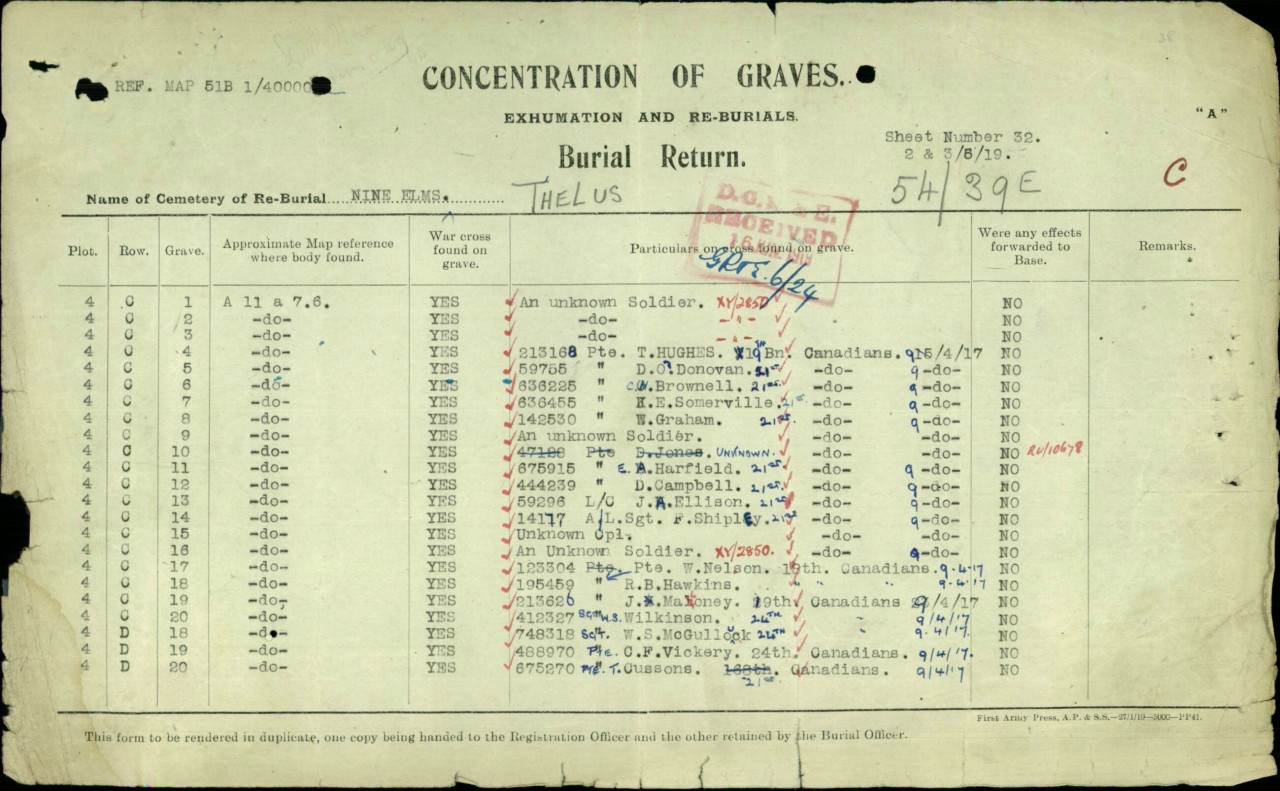 REF. MAP 51B 1/40000
CONCENTRATION OF GRAVES.
EXHUMATION AND RE-BURIALS.
"A"
Sheet Number 32.
Burial Return.
2 & 3/6/19.
C
54/39E
Name of Cemetery of Re-Burial NINE ELMS. THELUS
RECEIVED
GRVE. 6/24
Plot. Row. Grave. Approximate Map reference where body found. War cross found on grave. Particulars on cross found on grave. Were any effects forwarded to Base. Remarks.
4 C 1 A 11 a 7.6. YES An unknown Soldier. XY/2850 NO
4 C 2 -do- YES -do- -"- NO
4 C 3 -do- YES -do- -"- NO
4 C 4 -do- YES 213168 Pte. T.HUGHES. 19th Bn. Canadians. 9/4/17 NO
4 C 5 -do- YES 59755 " D.O'Donovan. 21st -do- 9 -do- NO
4 C 6 -do- YES 636225 " C.W.Brownell. 21st -do- 9 -do- NO
4 C 7 -do- YES 636455 " H.E.Somerville. 21st -do- 9 -do- NO
4 C 8 -do- YES 142530 " W.Graham. 21st -do- 9 -do- NO
4 C 9 -do- YES An unknown Soldier. -do- -do- NO
4 C 10 -do- YES 47128 Pte D.Jones. UNKNOWN. -do- -do- NO
4 C 11 -do- YES 675915 " E.A.Harfield. 21st -do- 9 -do- NO
4 C 12 -do- YES 444239 " D.Campbell. 21st -do- 9 -do- NO
4 C 13 -do- YES 59296 L/C J.A.Ellison. 21st -do- 9 -do- NO
4 C 14 -do- YES 14177 A/L.Sgt. F.Shipley. 21st -do- 9 -do- NO
4 C 15 -do- YES Unknown Cpl. -do- -do- NO
4 C 16 -do- YES An Unknown Soldier. XY/2850. -do- 9 -do- NO
4 C 17 -do- YES 123304 Pte. Pte. W.Nelson. 18th. Canadians. 9-4-17 NO
4 C 18 -do- YES 195459 " R.B.Hawkins. " " 9-4-17 NO
4 C 19 -do- YES 213626 " Maloney. 19th Canadians 9/4/17 NO
4 C 20 -do- YES 412327 Sgt. W.S. Wilkinson. 24TH " 9/4/17 NO
4 D 18 -do- YES 748318 Sgt. W.S.McGullock 24TH " 9-4-17. NO
4 D 19 -do- YES 488970 Pte. C.F.Vickery. 24th. Canadians. 9/4/17. NO
4 D 20 -do- YES 675270 Pte. T. Cussons. 168th. Canadians. 9/4/17 NO
21st
First Army Press, A.P. & S.S.—27/1/19—5000—PP41.
This form to be rendered in duplicate, one copy being handed to the Registration Officer and the other retained by the Burial Officer.